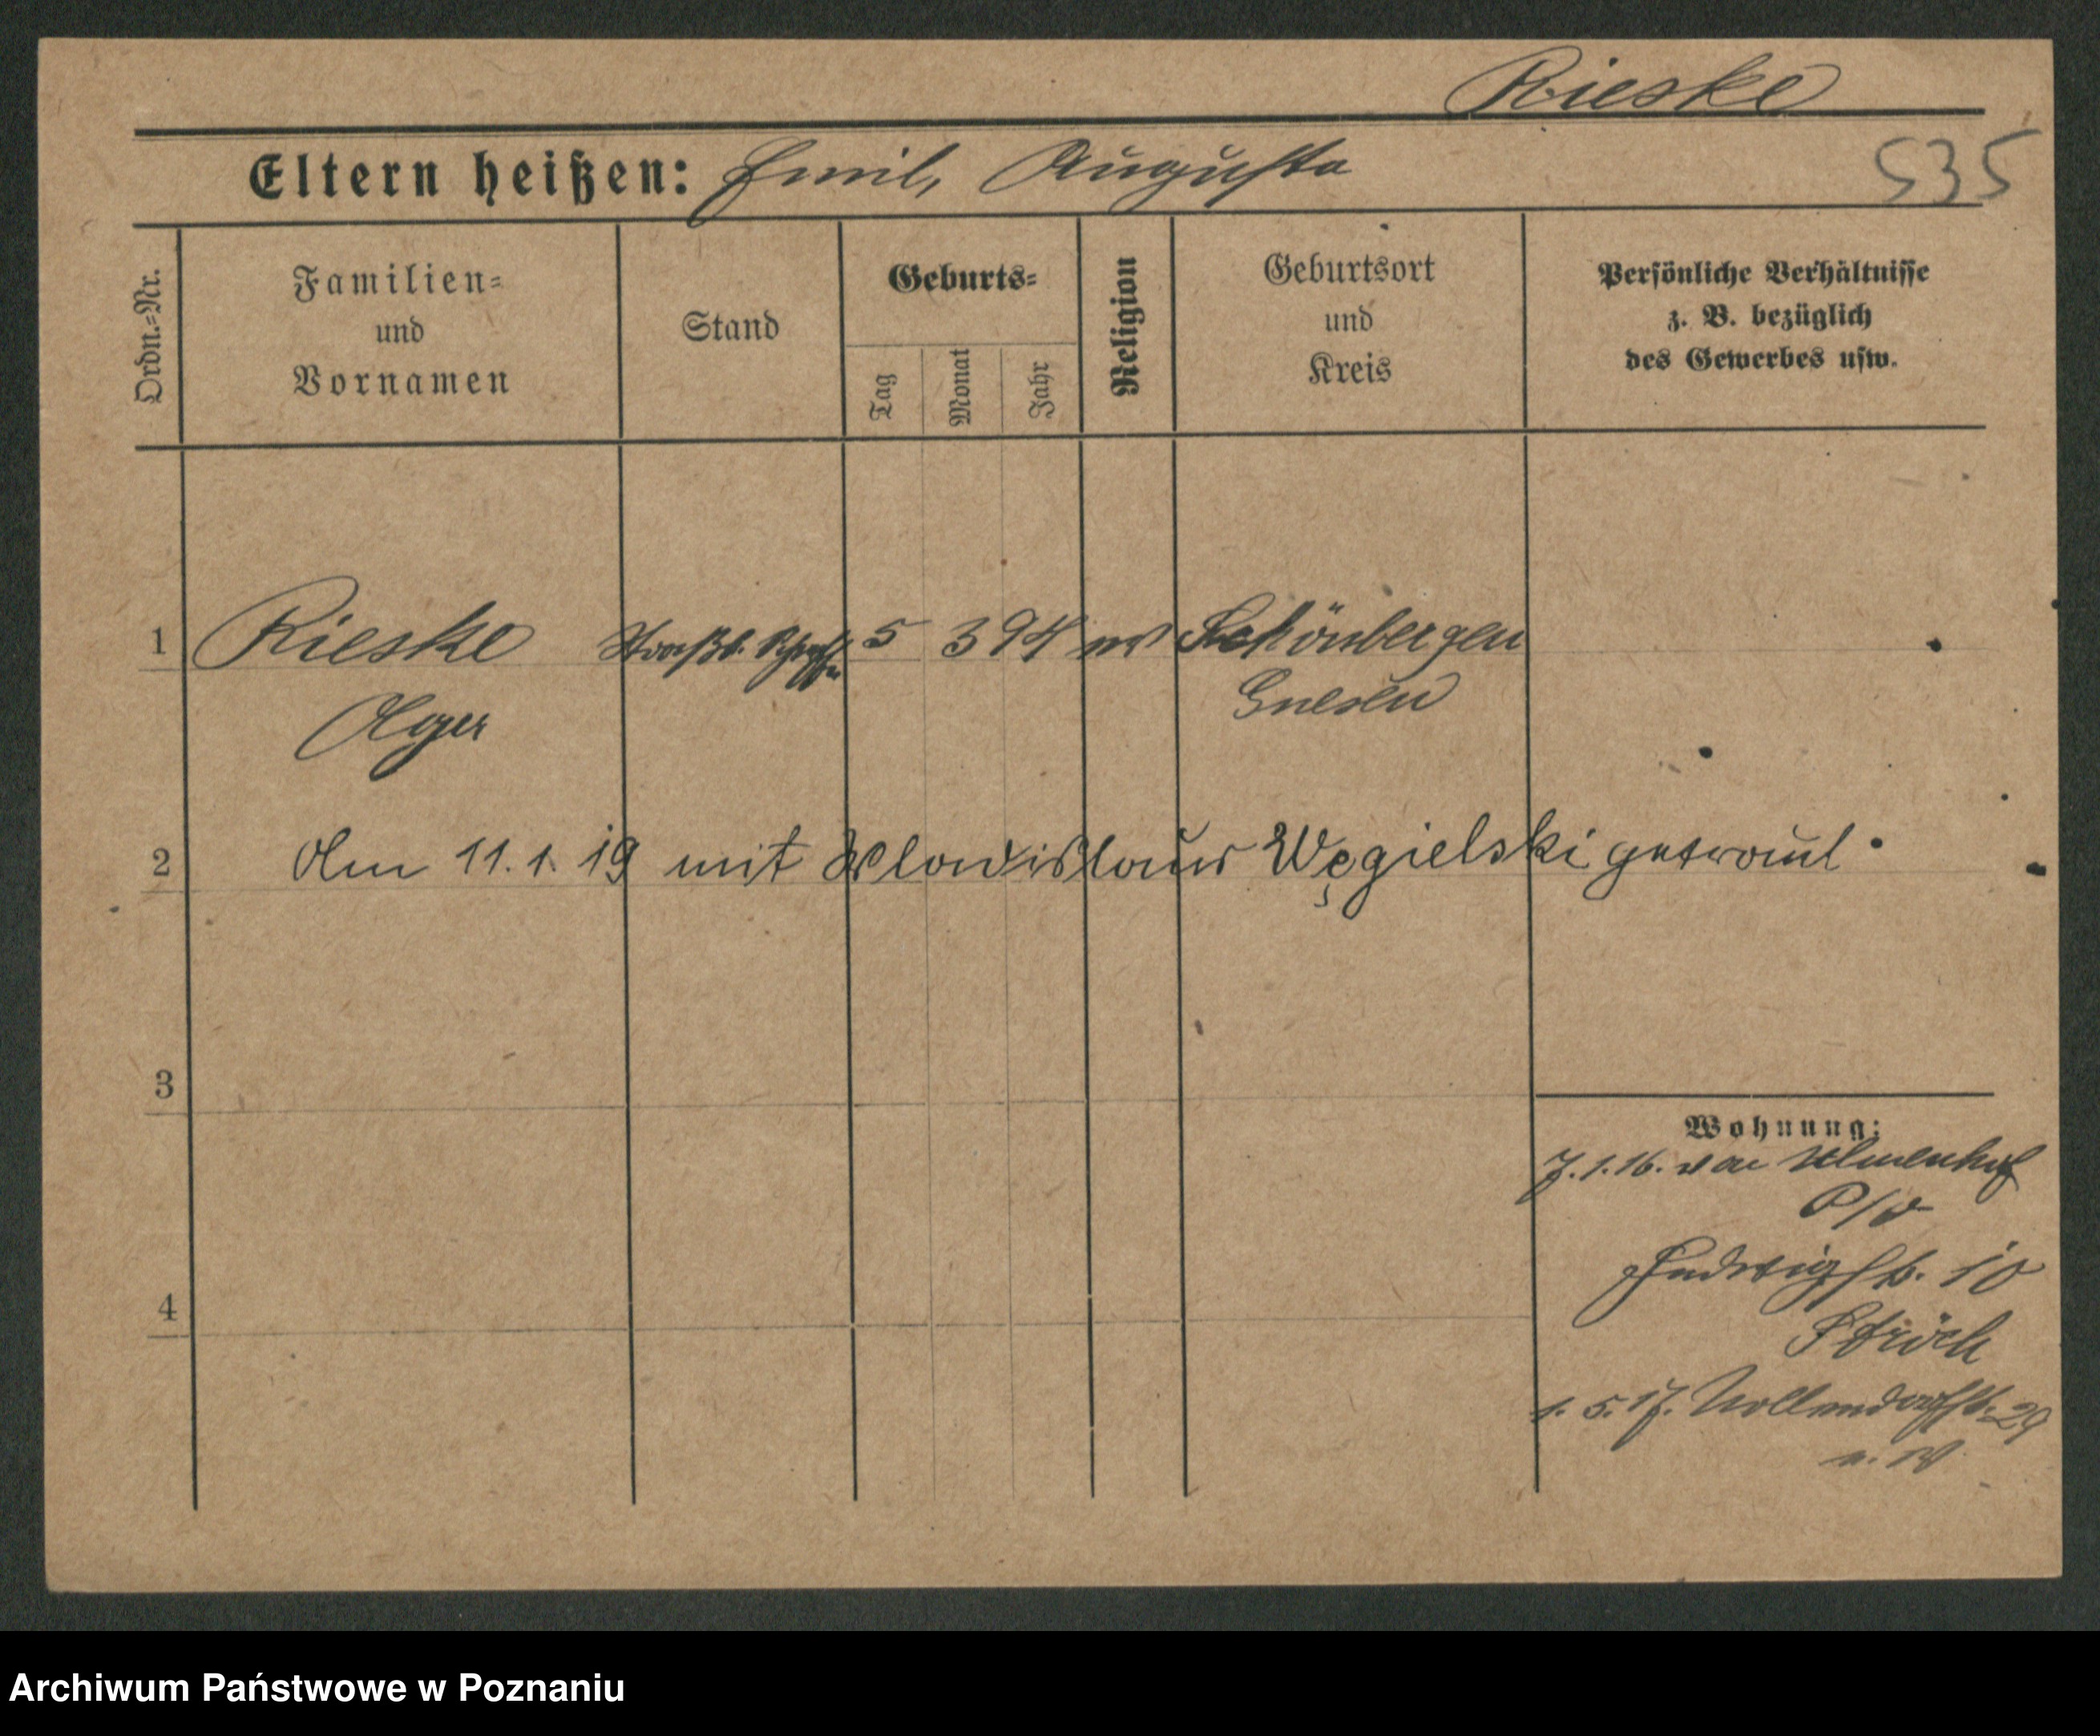 Rieske
Eltern heißen: Emil, Augusta
535
Ordn.-Nr.
Familien-
und
Vornamen
Stand
Geburts-
Tag
Monat
Jahr
Religion
Geburtsort
und
Kreis
Persönliche Verhältnisse
z. B. bezüglich
des Gewerbes usw.
1 Rieske 5 3 94 Schönbergen
Gnesen
2 Am 11. 1. 19 mit Wladislaus Węgielski getraut.
3
Wohnung:
7. 1. 16. Ulmenhof
4
10
1. 5. 17. Nollendorfstr. 29
Archiwum Państwowe w Poznaniu